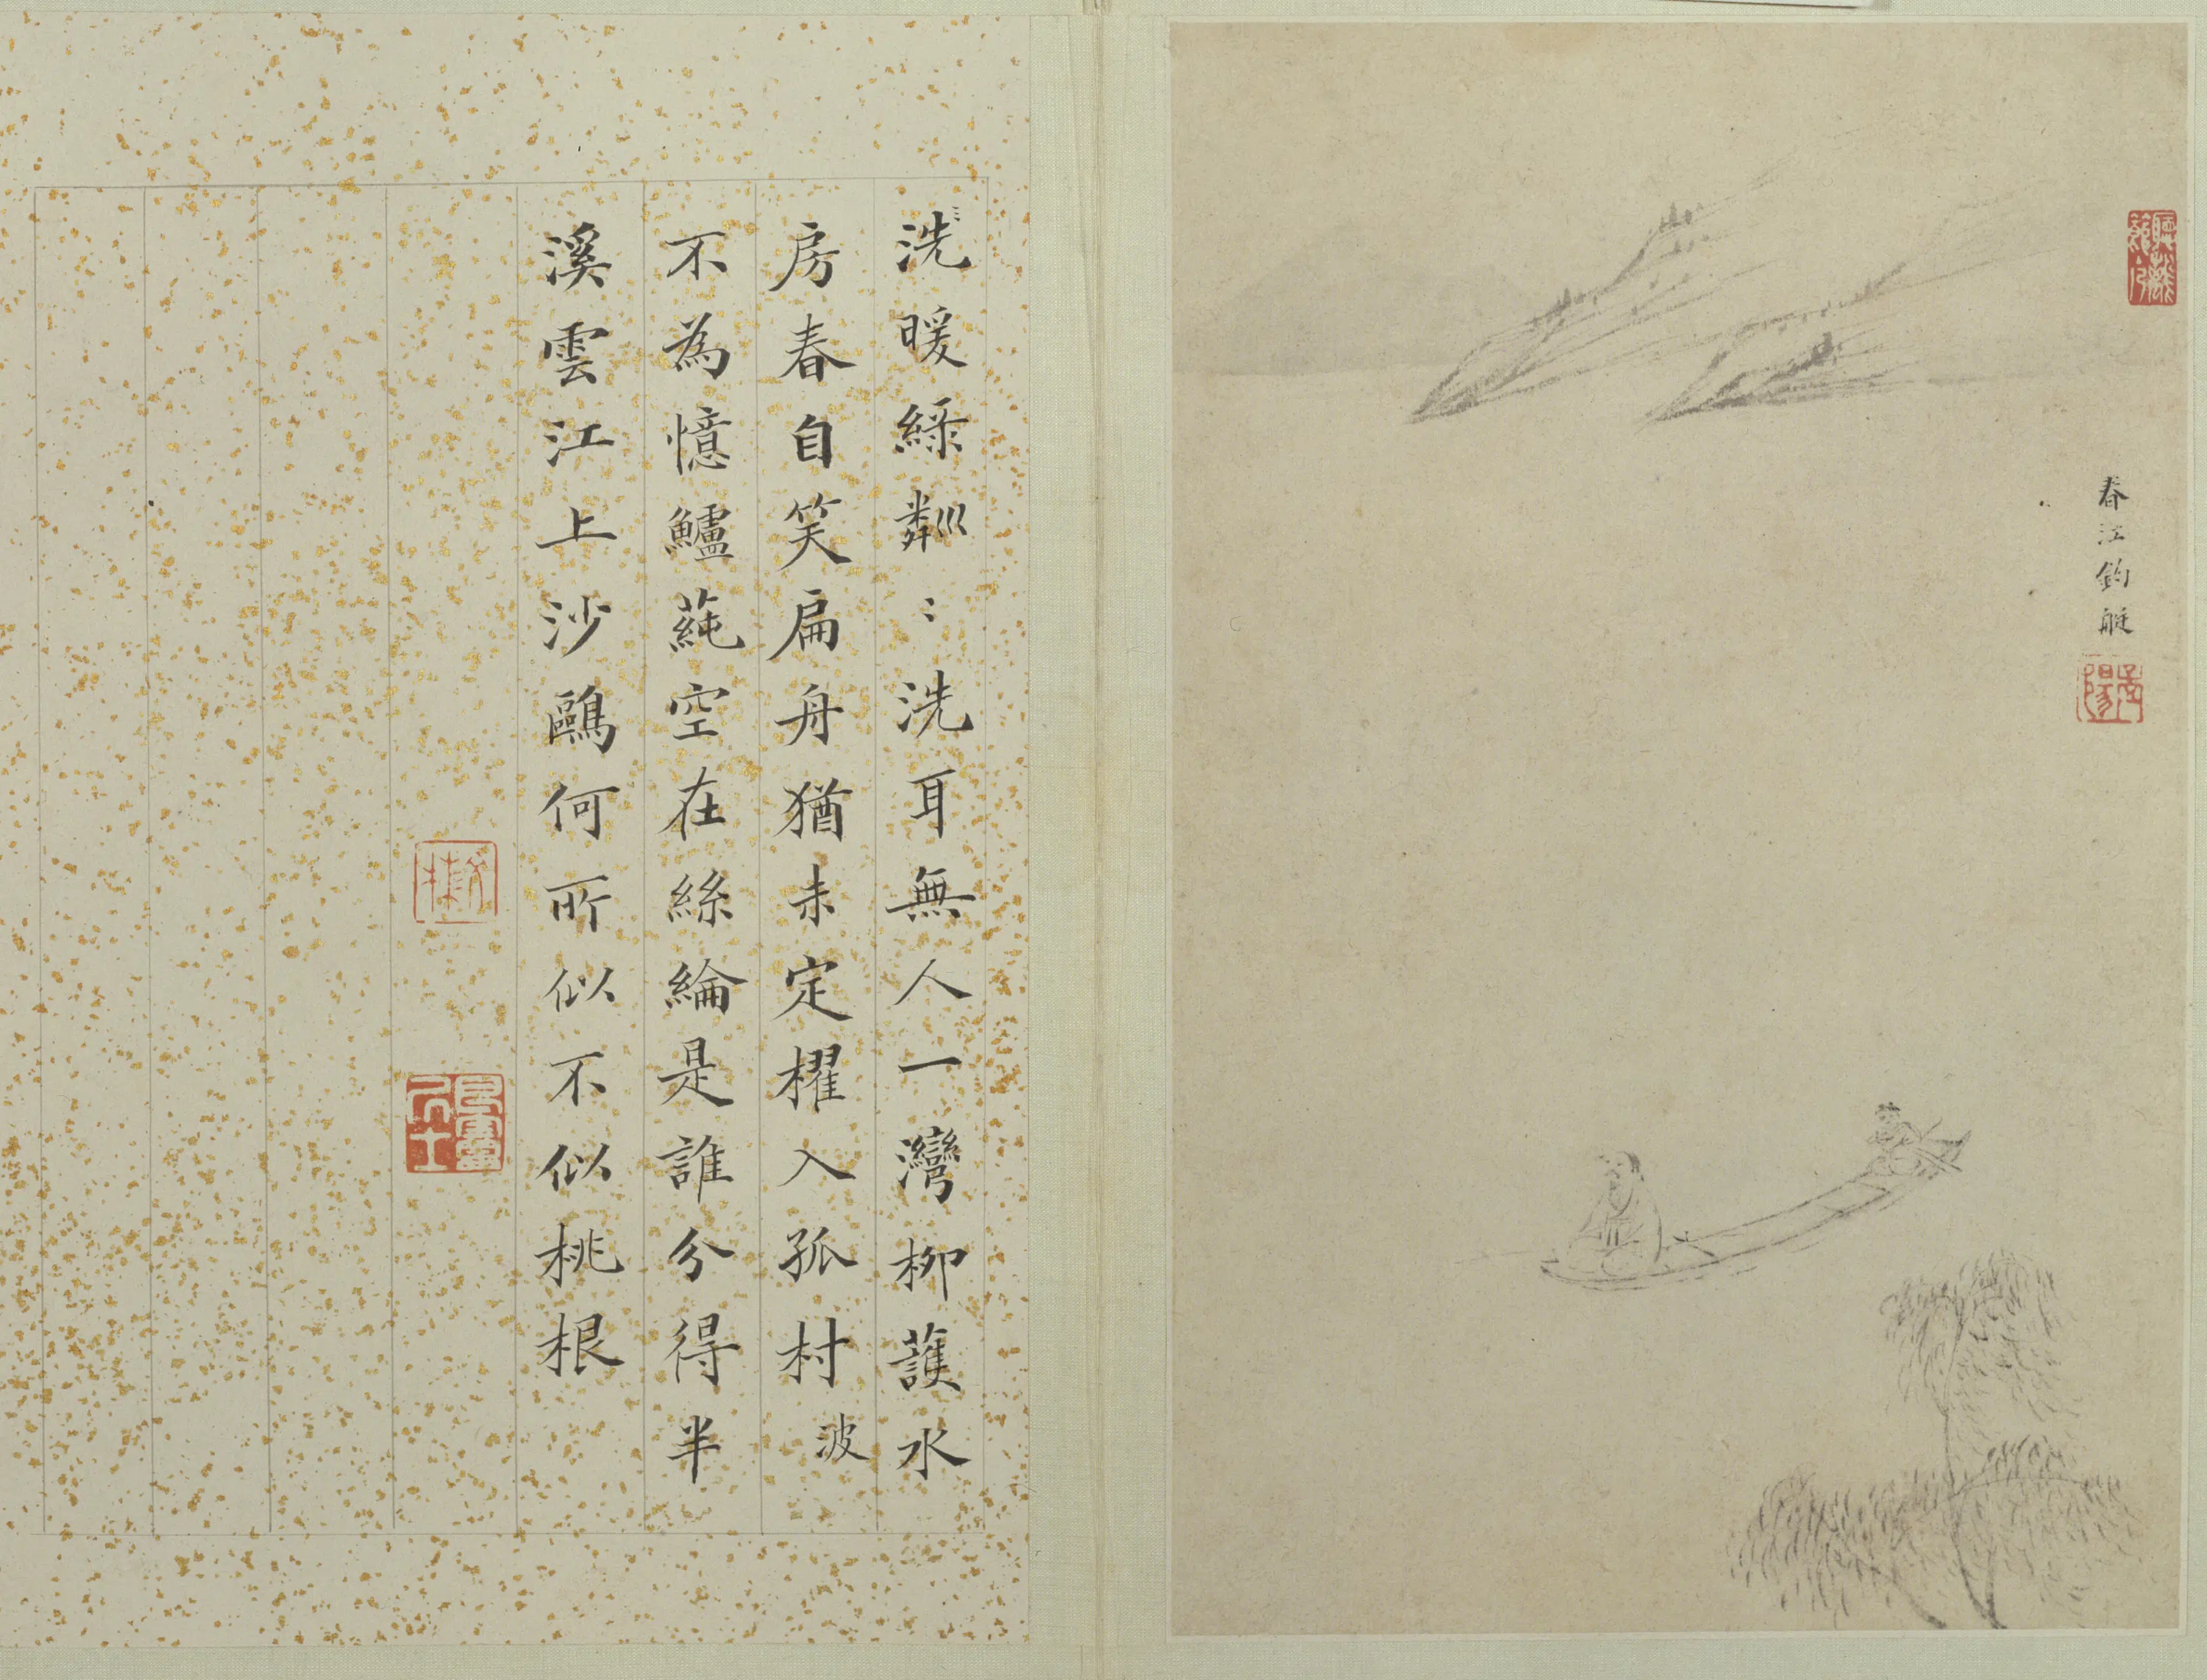 春江釣艇
洗暖綠粼:洗耳無人一灣柳護水
房春自笑扁舟猶未定櫂入孤村波
不為憶鱸蒓空在絲綸是誰分得半
溪雲江上沙鷗何所似不似桃根